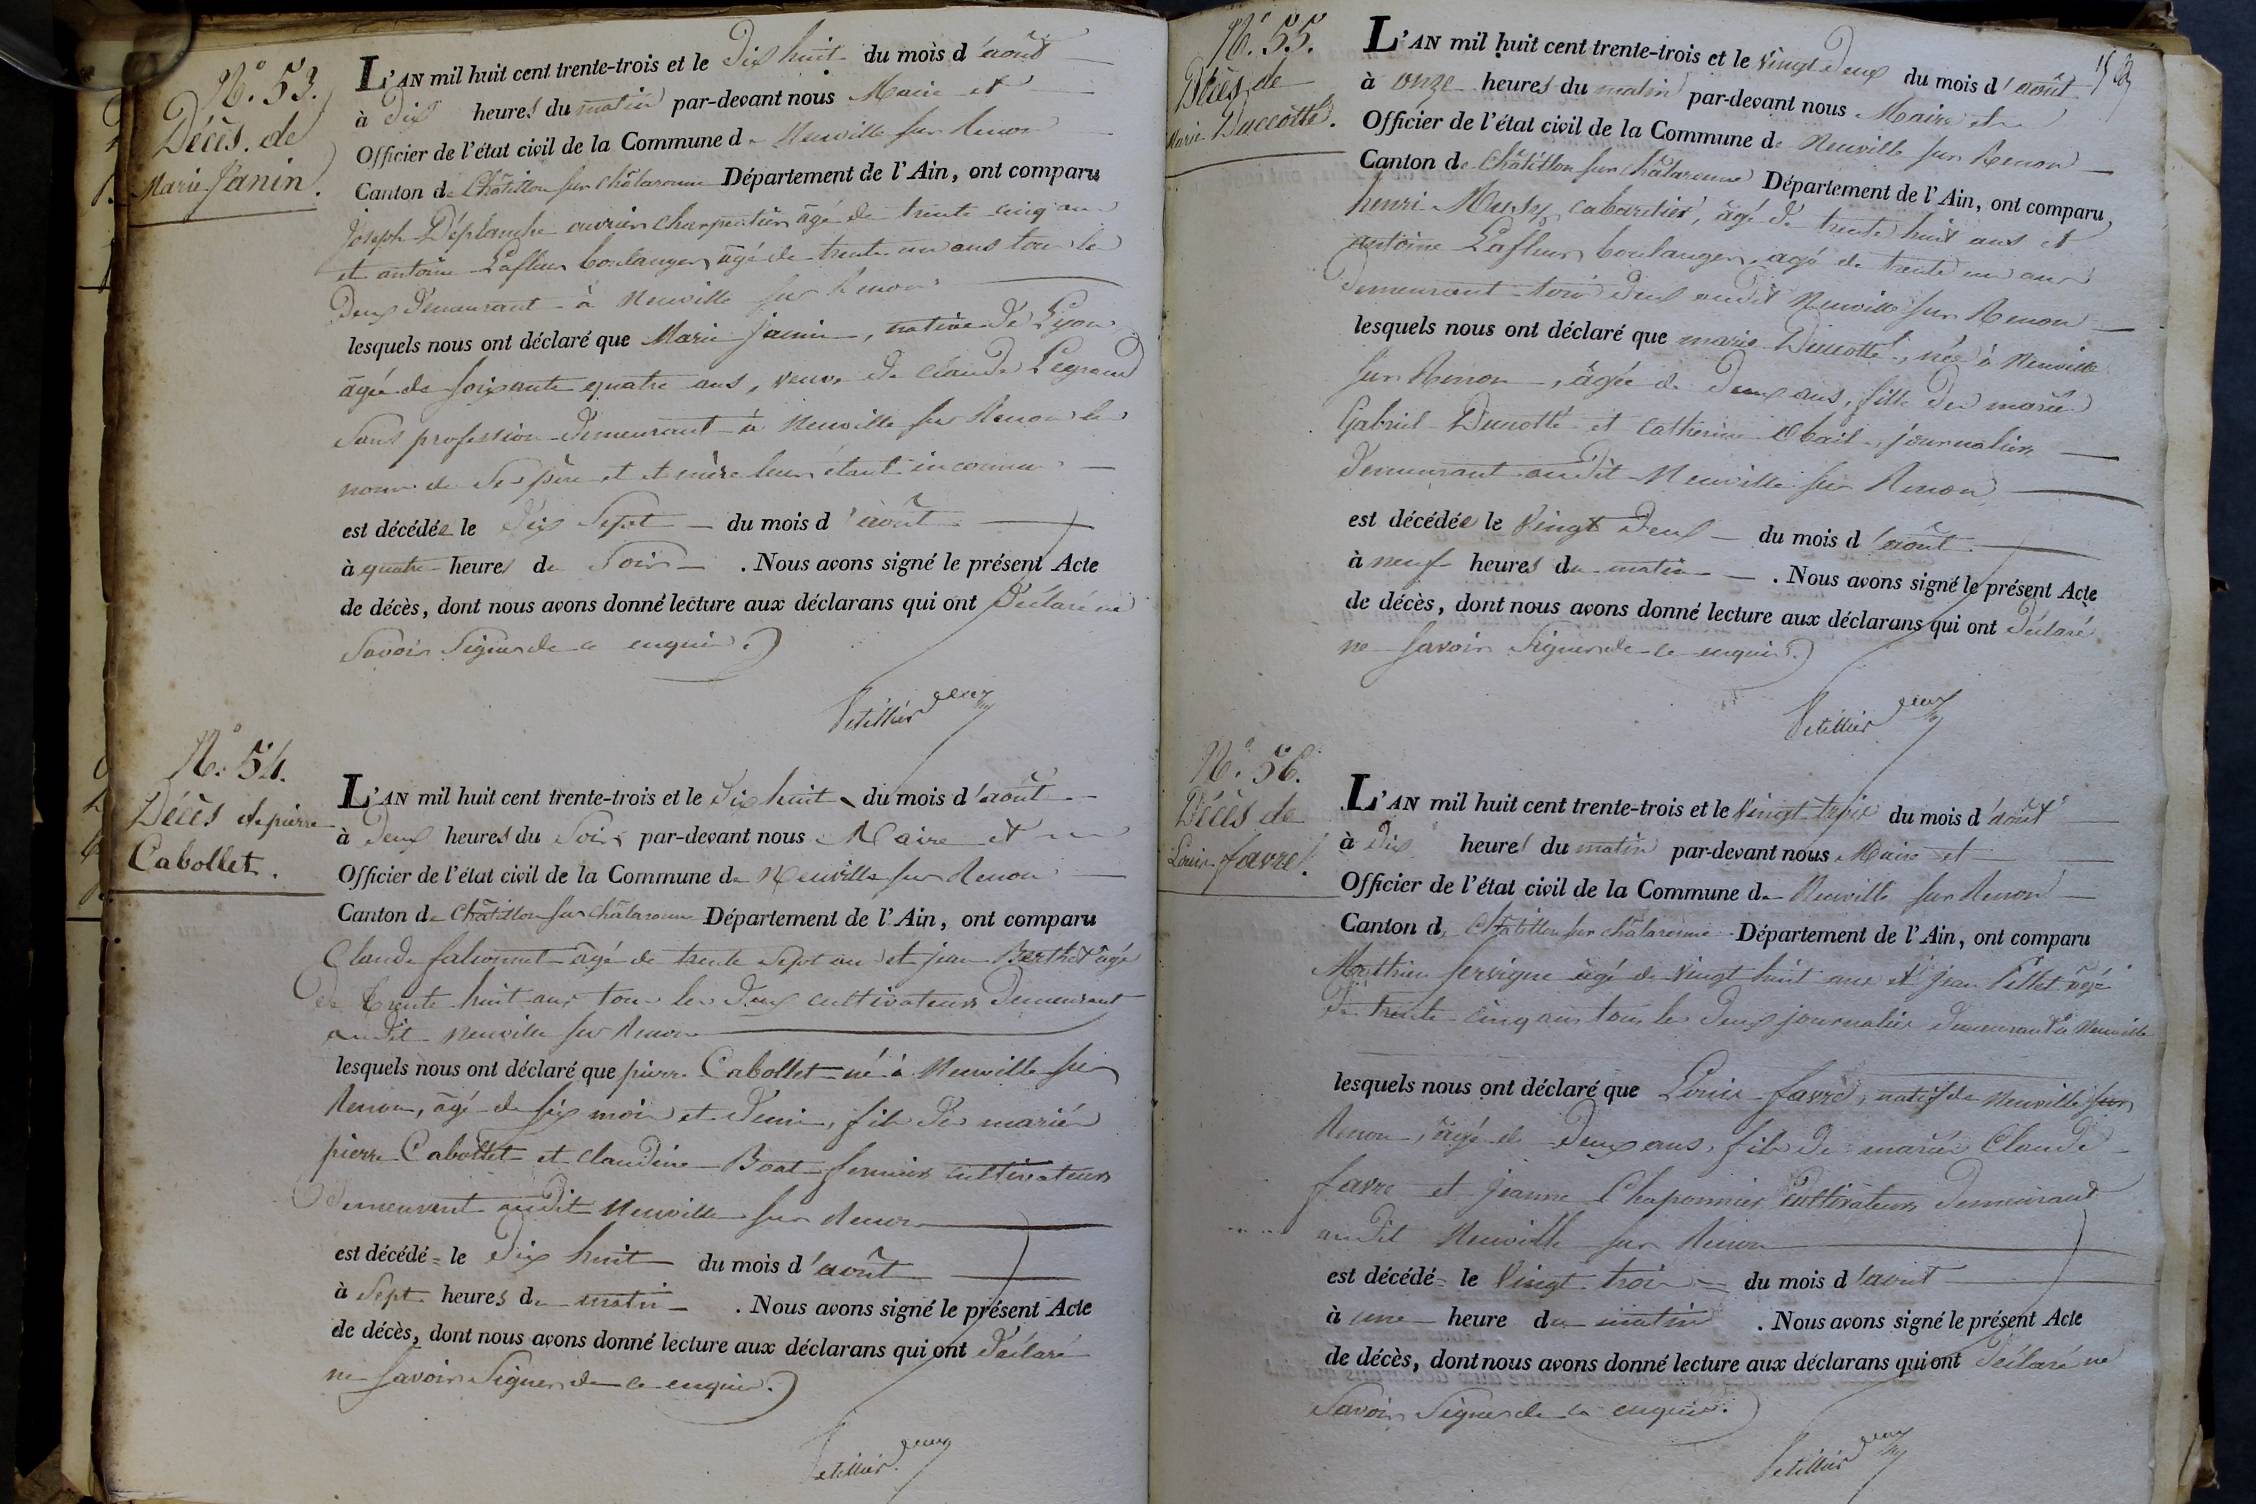 N.° 53.
Décès de
Marie Janin.
L'AN mil huit cent trente-trois et le Dix huit du mois d'août
à Dix heures du matin par-devant nous Maire et
Officier de l'état civil de la Commune de Neuville sur Renon
Canton de Châtillon sur Châlaronne Département de l'Ain, ont comparu
Joseph Déplanche ouvrier charpentier âgé de trente cinq ans
et antoine Lafleur boulanger âgé de trente un ans tous les
Deux Demeurant à Neuville sur Renon
lesquels nous ont déclaré que Marie Janin, native de Lyon
âgée de soixante quatre ans, veuve de Claude Legrand
Sans profession Demeurant à Neuville sur Renon les
noms de ses père et mère leur étant inconnus
est décédée le Dix Sept du mois d'août
à quatre heures du Soir. Nous avons signé le présent Acte
de décès, dont nous avons donné lecture aux déclarans qui ont Déclaré ne
Savoir Signer de ce enquis.
N.° 54.
Décès de pierre
Cabollet.
L'AN mil huit cent trente-trois et le Dix huit du mois d'août
à Deux heures du Soir par-devant nous Maire et
Officier de l'état civil de la Commune de Neuville sur Renon
Canton de Châtillon sur Châlaronne Département de l'Ain, ont comparu
Claude falconnet âgé de trente Sept ans et jean Berthet âgé
de trente huit ans tous les Deux cultivateurs Demeurant
audit Neuville sur Renon
lesquels nous ont déclaré que pierre Cabollet né à Neuville sur
Renon, âgé de six mois et Demi, fils des mariés
pierre Cabollet et Claudine Boat fermiers cultivateurs
Demeurant audit Neuville sur Renon
est décédé le Dix huit du mois d'août
à Sept heures du matin. Nous avons signé le présent Acte
de décès, dont nous avons donné lecture aux déclarans qui ont Déclaré
ne Savoir Signer de ce enquis.
N.° 55.
Décès de
Marie Duccotté.
L'AN mil huit cent trente-trois et le Vingt Deux du mois d'août
à onze heures du matin par-devant nous Maire et
Officier de l'état civil de la Commune de Neuville sur Renon
Canton de Châtillon sur Châlaronne Département de l'Ain, ont comparu
henri Mussy, cabaretier, âgé de trente huit ans et
antoine Lafleur boulanger, âgé de trente un ans
Demeurant tous Deux audit Neuville sur Renon
lesquels nous ont déclaré que marie Duccotté, née à Neuville
sur Renon, âgée de Deux ans, fille des mariés
Gabriel Duccotté et Catherine journaliers
Demeurant audit Neuville sur Renon
est décédée le Vingt Deux du mois d'août
à neuf heures du matin. Nous avons signé le présent Acte
de décès, dont nous avons donné lecture aux déclarans qui ont Déclaré
ne Savoir Signer de ce enquis.
N.° 56.
Décès de
Louis favre.
L'AN mil huit cent trente-trois et le Vingt trois du mois d'août
à Dix heures du matin par-devant nous Maire et
Officier de l'état civil de la Commune de Neuville sur Renon
Canton de Châtillon sur Châlaronne Département de l'Ain, ont comparu
Mathieu Servigne âgé de Vingt huit ans et jean Pillet âgé
de trente cinq ans tous les Deux journaliers Demeurant à Neuville
lesquels nous ont déclaré que Louis favre, natif de Neuville sur
Renon, âgé de Deux ans, fils des mariés Claude
favre et Jeanne Chaponnier Cultivateurs Demeurant
audit Neuville sur Renon
est décédé le Vingt trois du mois d'août
à une heure du matin. Nous avons signé le présent Acte
de décès, dont nous avons donné lecture aux déclarans qui ont Déclaré ne
Savoir Signer de ce enquis.